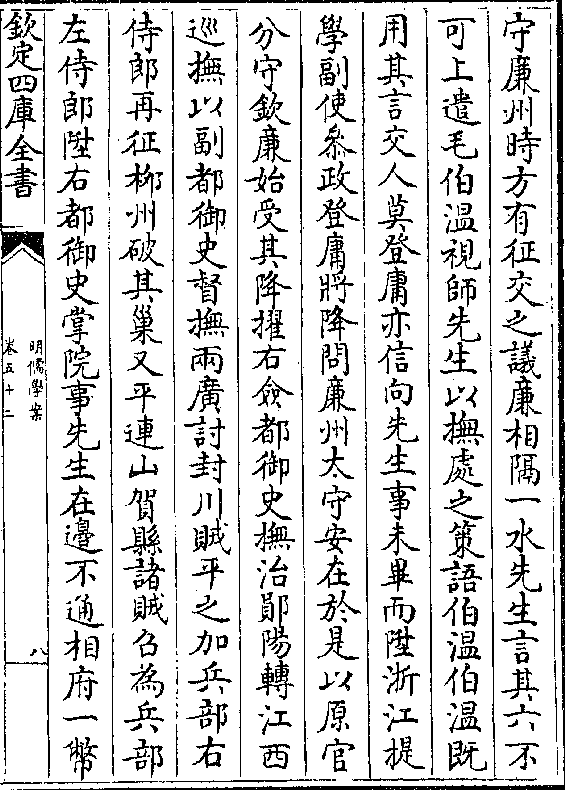 守廉州時方有征交之議廉相隔一水先生言其六不
可上遣毛伯溫視師先生以撫處之策語伯溫伯溫既
用其言交人莫登庸亦信向先生事未畢而陞浙江提
學副使叅政登庸將降問廉州太守安在於是以原官
分守欽廉始受其降擢右僉都御史撫治鄖陽轉江西
巡撫以副都御史督撫兩廣討封川賊平之加兵部右
侍郎再征栁州破其巢又平連山賀縣諸賊召為兵部
左侍郎陞右都御史掌院事先生在邊不通相府一幣
欽定四庫全書
明儒學案
卷五十二
八